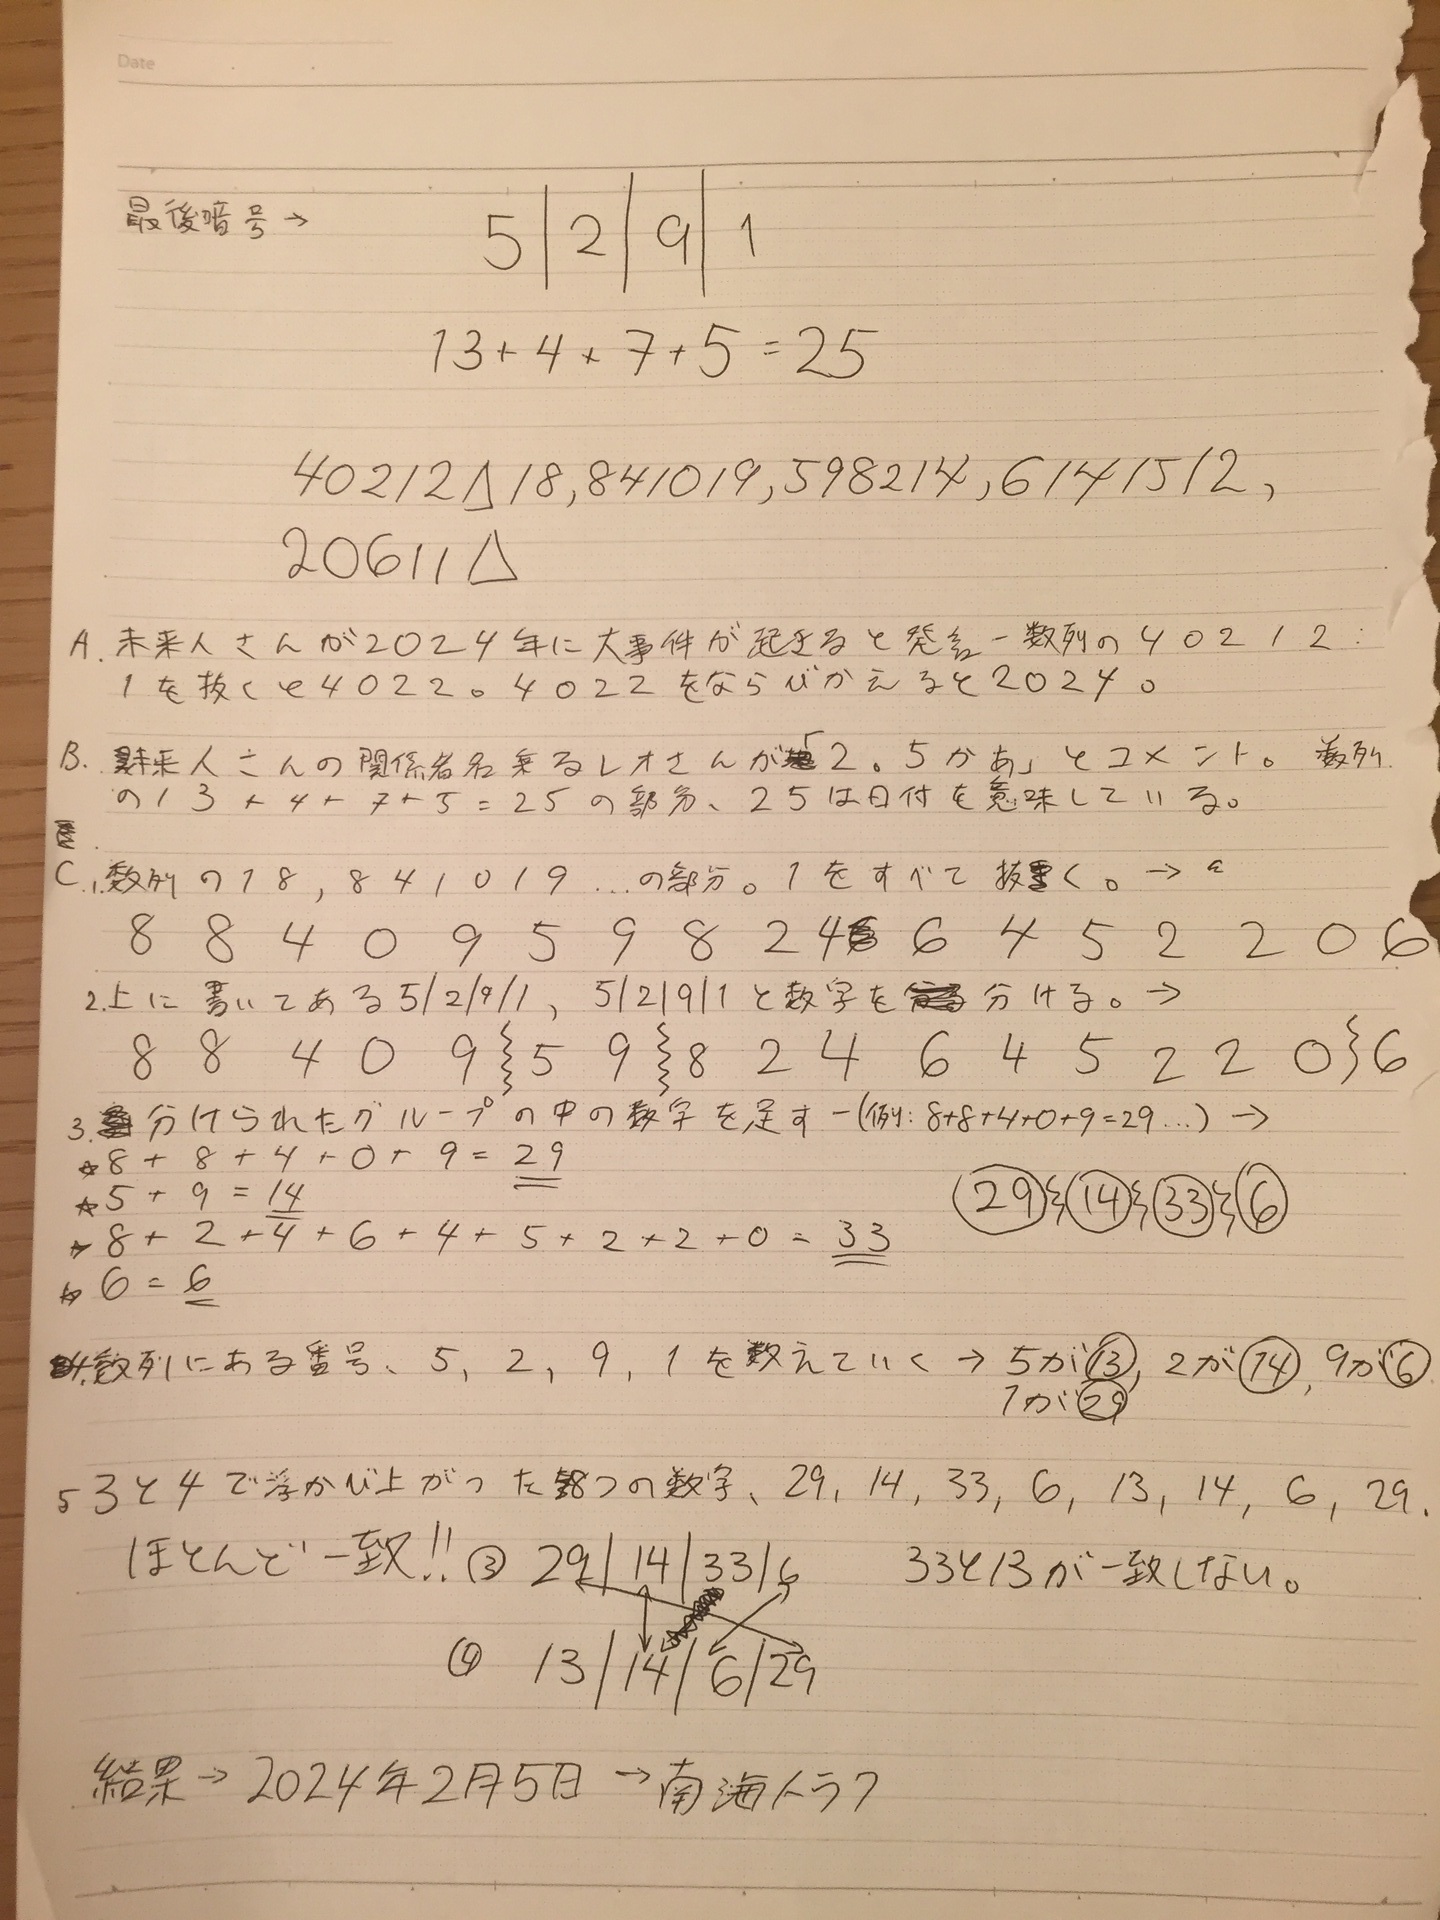 Date
最後暗号→ 5|2|9|1
13+4+7+5=25
40212△18,841019,598214,6141512,
20611△
A. 未来人さんが2024年に大事件が起きると発言－数列の40212:
1を抜くと4022。4022をならびかえると2024。
B. 未来人さんの関係者名乗るレオさんが「2。5かあ」とコメント。数列
の13+4+7+5=25の部分、25は日付を意味している。
C.1.数列の18,841019...の部分。1をすべて抜く。→
8 8 4 0 9 5 9 8 2 4 6 4 5 2 2 0 6
2.上に書いてある5/2/9/1, 5/2/9/1と数字を分ける。→
8 8 4 0 9 5 9 8 2 4 6 4 5 2 2 0 6
3.分けられたグループの中の数字を足す－(例:8+8+4+0+9=29...)→
☆8+8+4+0+9=29
☆5+9=14
29 14 33 6
☆8+2+4+6+4+5+2+2+0=33
☆6=6
4.数列にある番号、5,2,9,1を数えていく→5が13,2が14,9が6
1が29
5 3と4で浮かび上がった8つの数字、29,14,33,6,13,14,6,29.
ほとんど一致!!③ 29|14|33|6 33と13が一致しない。
④ 13|14|6|29
結果→2024年2月5日→南海トラフ